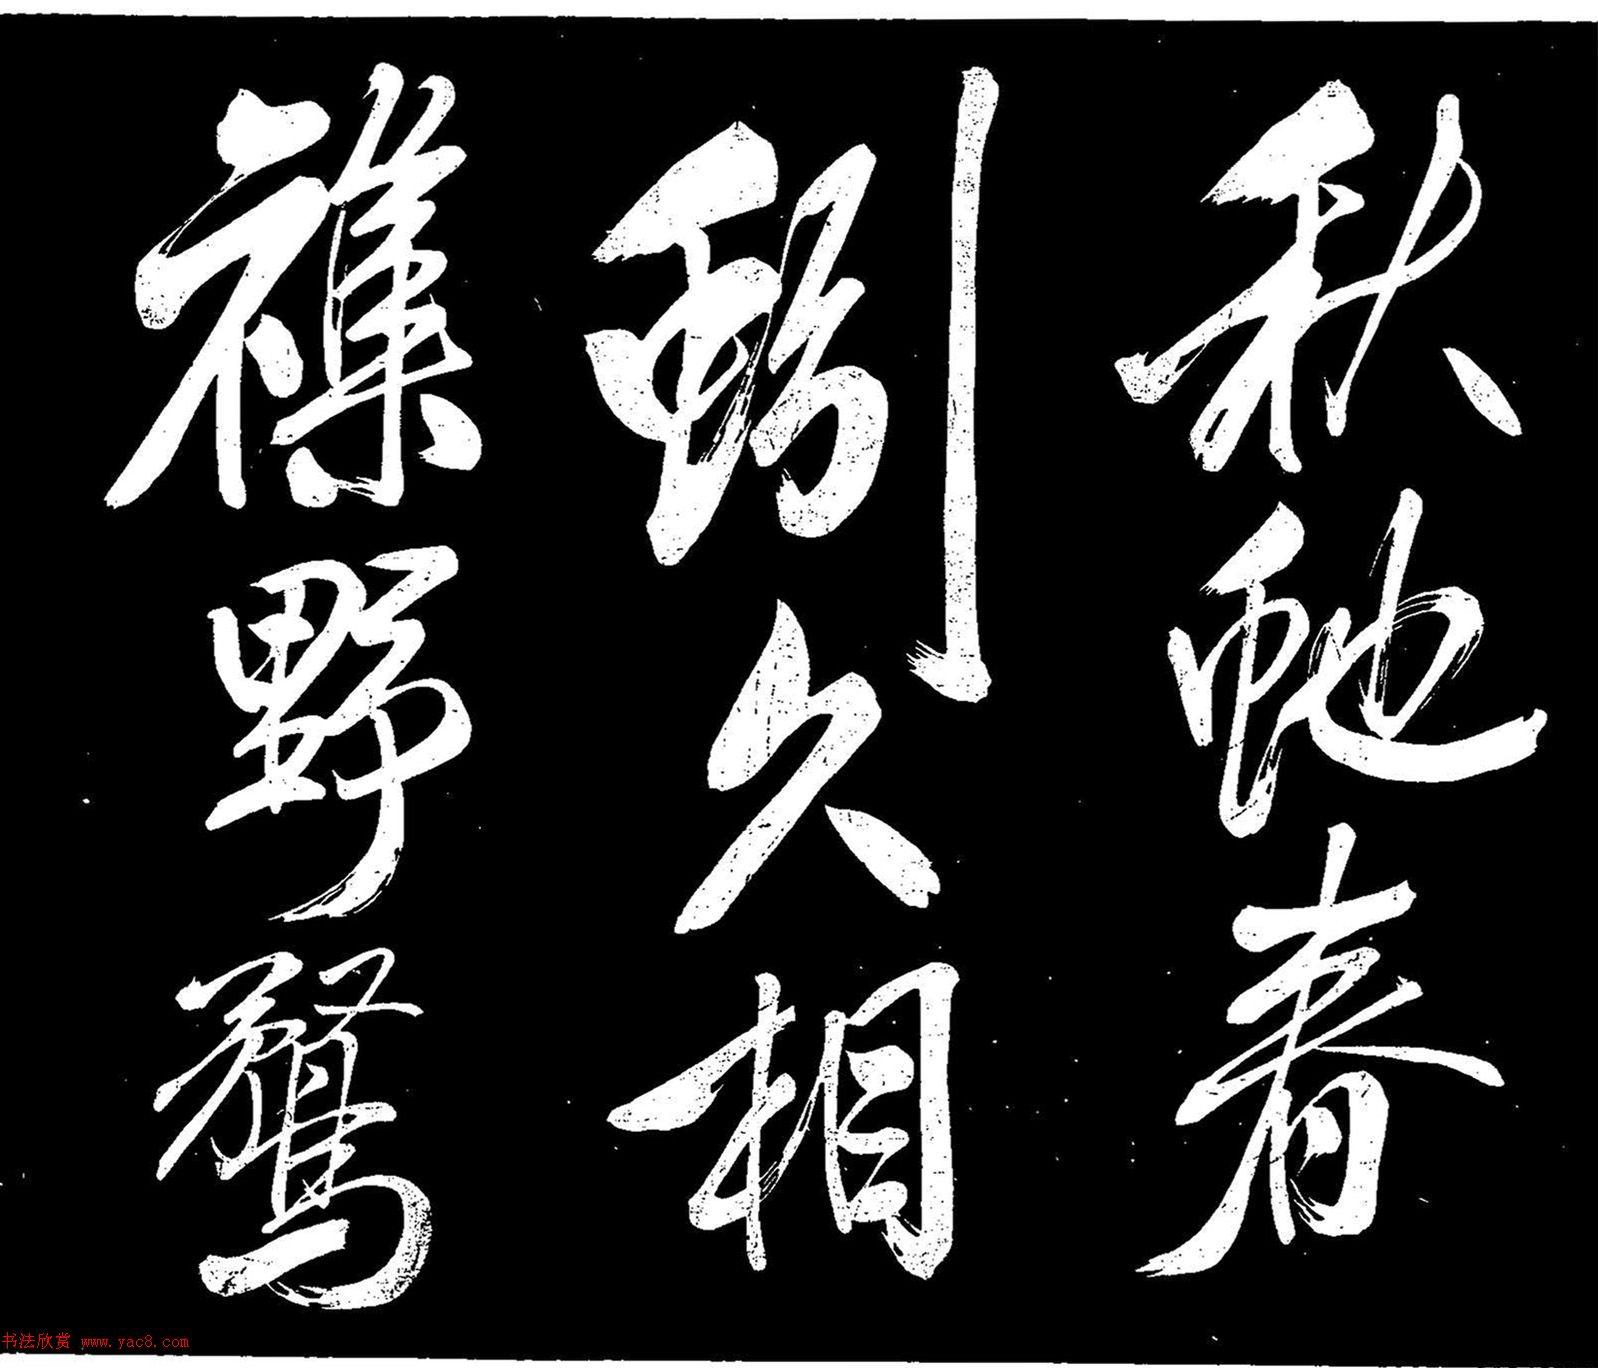 秋虵春
蚓久相
襍野鶩
书法欣赏 www.yac8.com